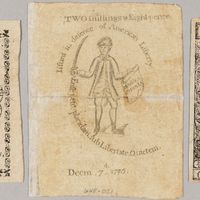 TWO Shillings & Eight pence
Issued in defence of American Liberty
Ense petit placidam sub Libertate Quietem
Decm. 7. 1775.